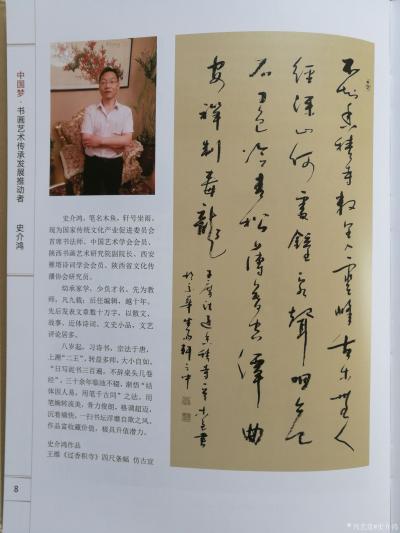 中国梦·书画艺术传承发展推动者 史介鸿
史介鸿,笔名木鱼,轩号坐雨,
现为国家传统文化产业促进委员会
首席书法师、中国艺术学会会员、
陕西书画艺术研究院副院长、西安
雁塔诗词学会会员、陕西省文化传
播协会研究员。
幼承家学,少负才名。先为教
师,凡九载;后任编辑,越十年。
先后发表文章数十万字,以散文、
故事、近体诗词、文史小品、文艺
评论居多。
八岁起,习诗书,宗法于唐,
上溯“二王”,转益多师,大小自如。
“日写起书三百遍,不辞桌头几卷
经”,三十余年临池不辍,渐悟“结
体因人易,用笔千古同”之法。用
笔婉转流美,骨力俊朗,格调超迈,
沉着痛快,一扫书坛浮靡自欺之风。
作品富收藏价值,极具升值潜力。
史介鸿作品
王维《过香积寺》四尺条幅 仿古宣
8
不知香积寺数里入云峰古木无人
径深山何处钟泉声咽危
石日色冷青松薄暮空潭曲
安禅制毒龙